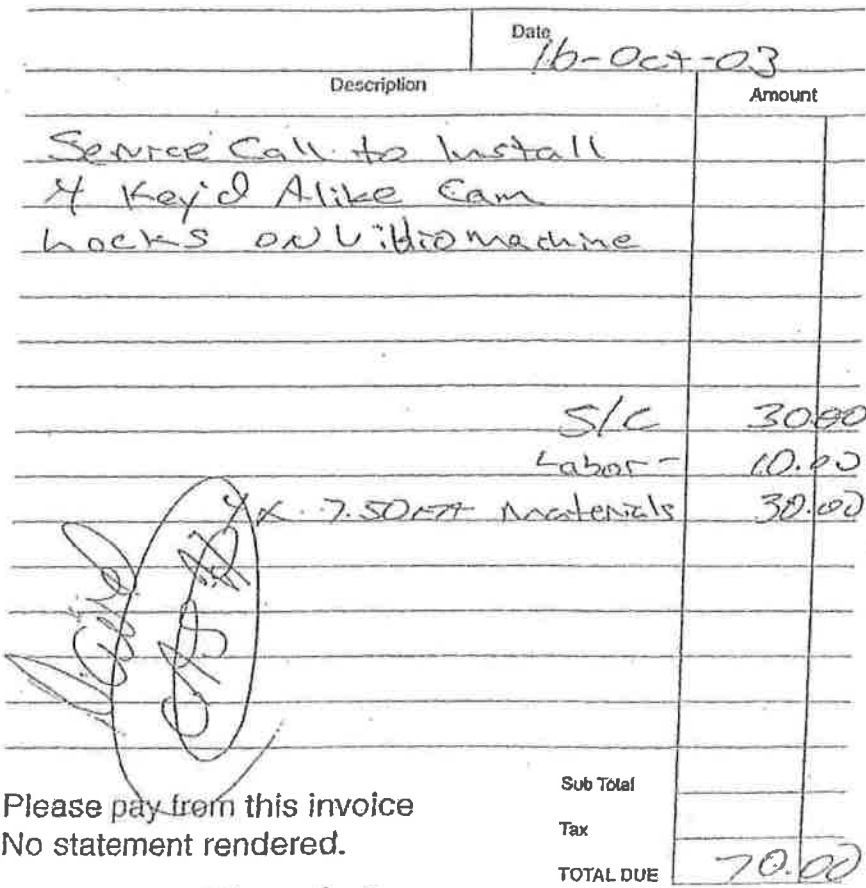 Date
16-Oct-03
Description
Amount
Service Call to Install
4 Key'd Alike Cam
Locks on Vidio machine
S/C 30.00
Labor- 10.00
4 x 7.50 EA Materials 30.00
Please pay from this invoice
No statement rendered.
Sub Total
Tax
TOTAL DUE 70.00